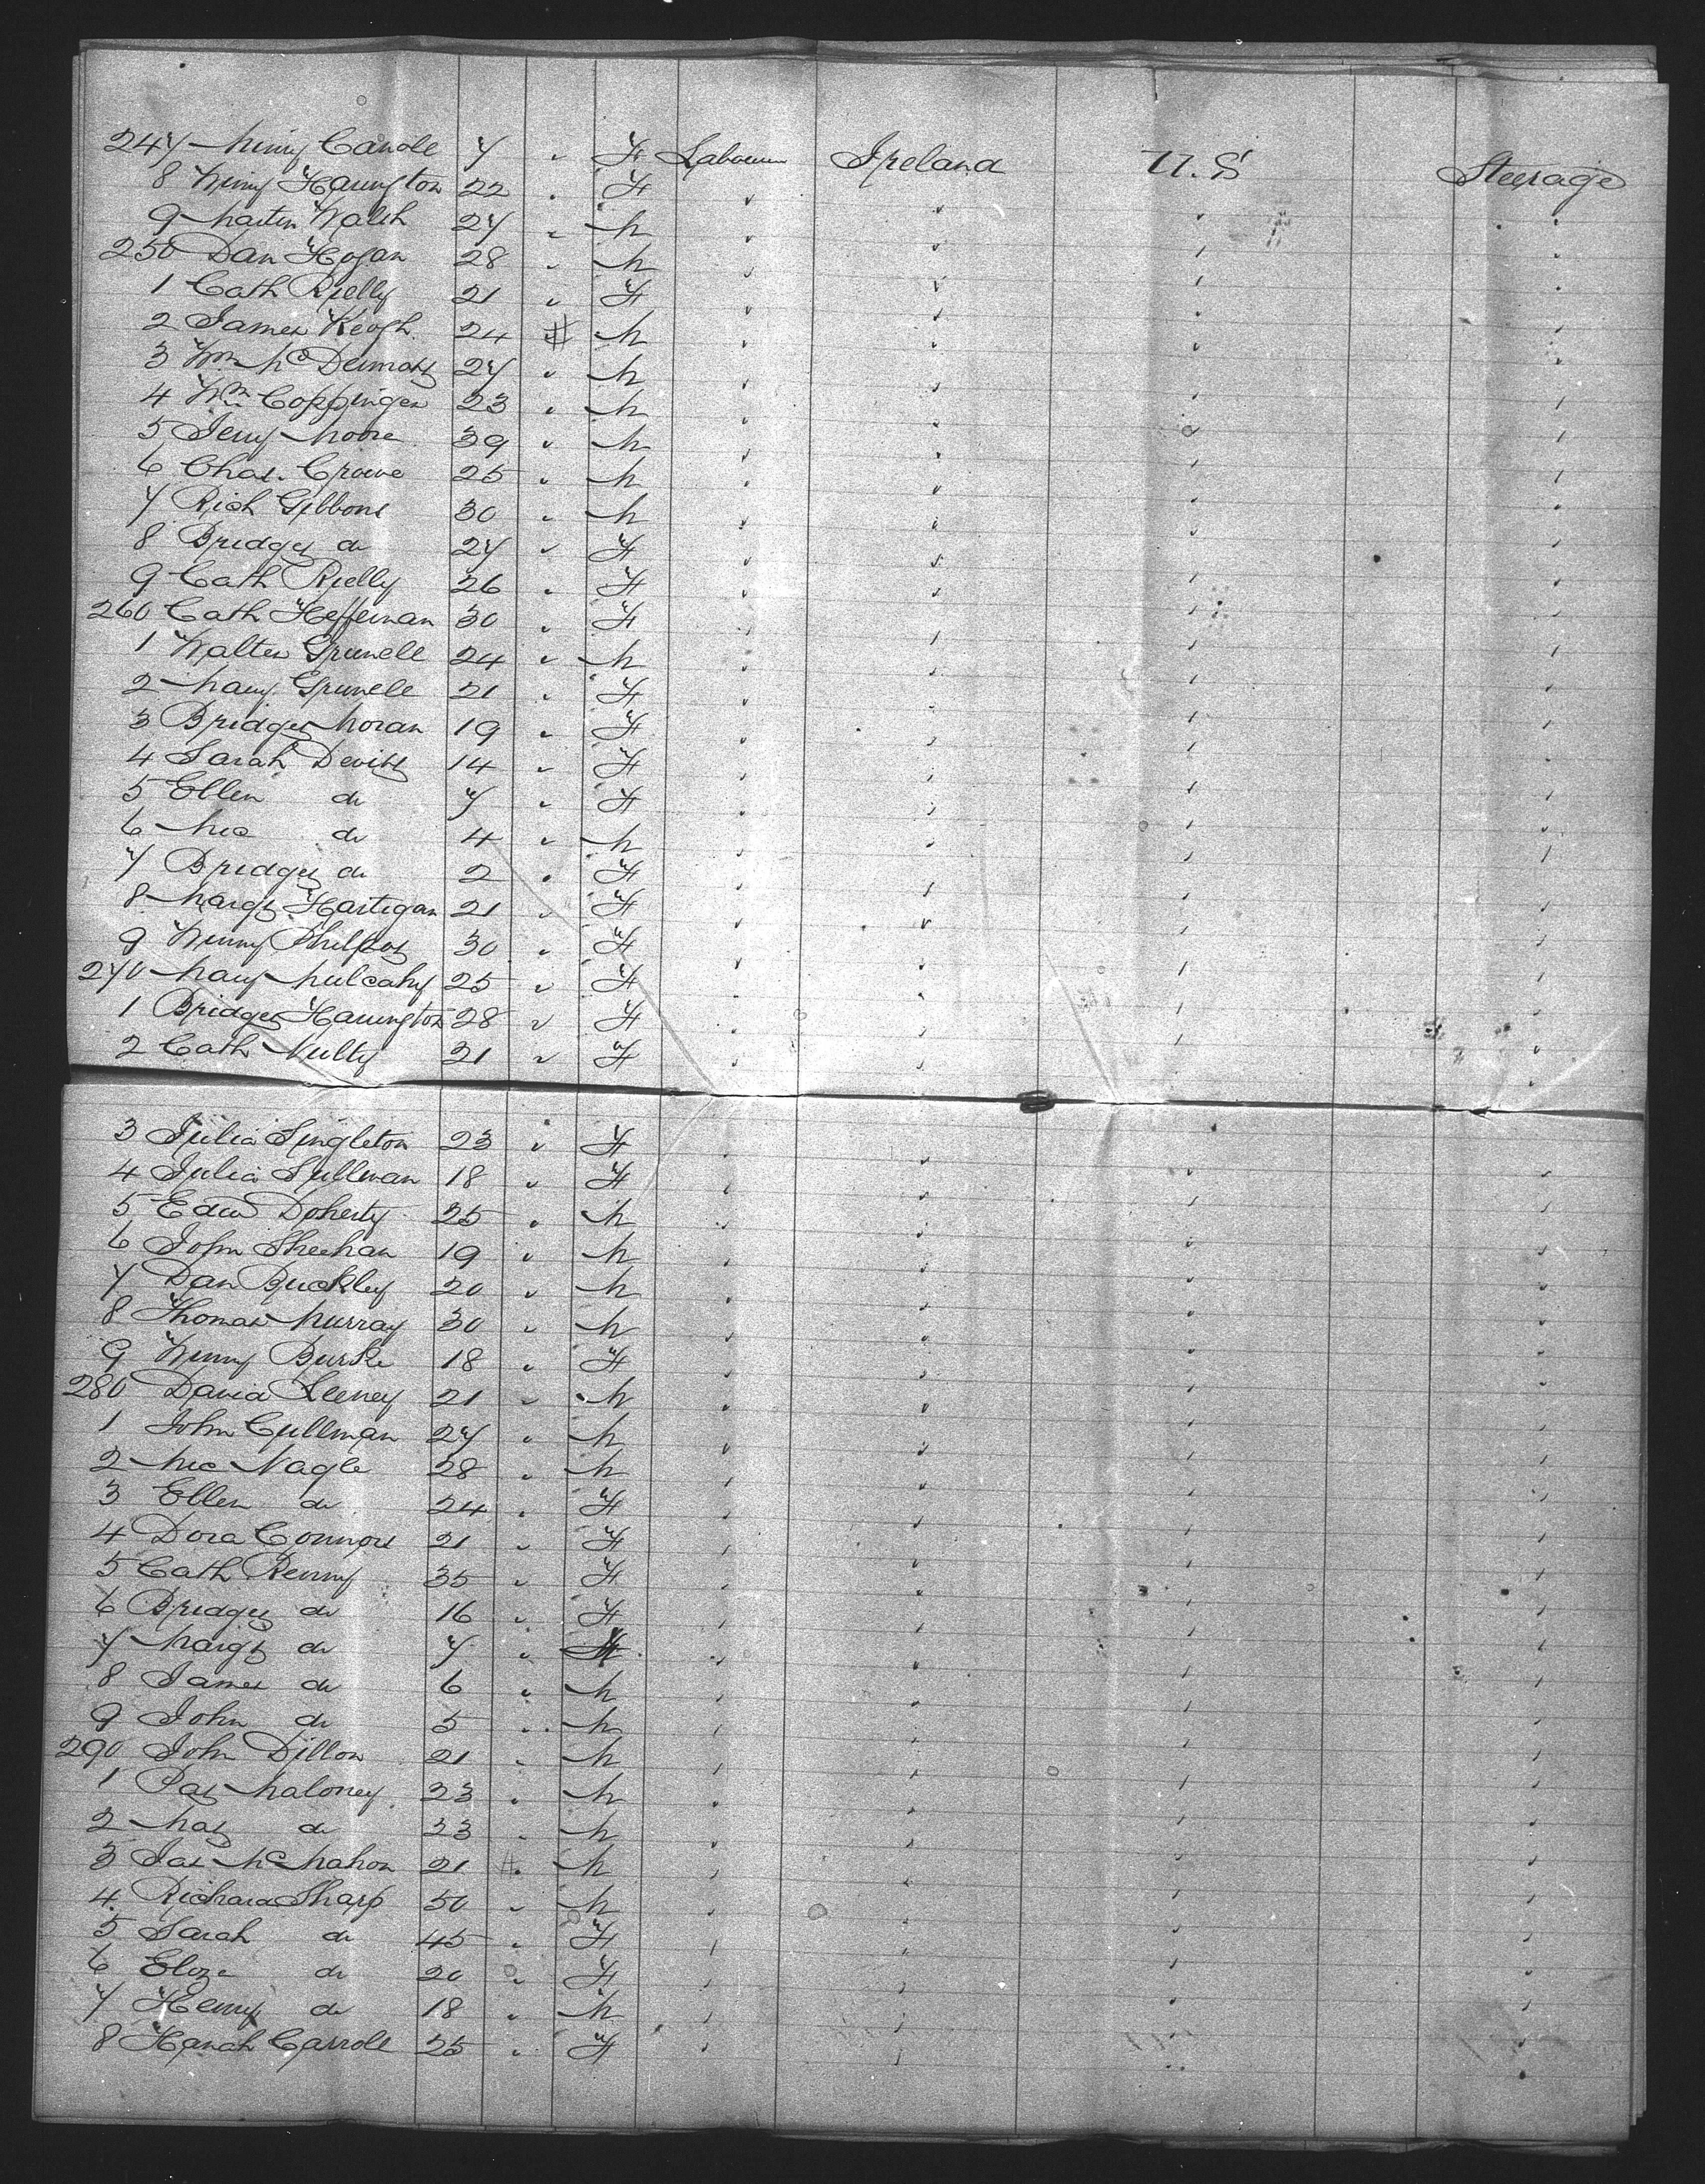 247 Minny Canole 7 " F Labourer Ireland U.S. Steerage
8 Winny Harrington 22 " F
9 Martin Walsh 27 " M
250 Dan Hogan 28 " M
1 Cath Rielly 21 " F
2 James Keogh 24 " M
3 Wm McDermott 27 " M
4 Wm Coppinger 23 " M
5 Jerry Moore 39 " M
6 Chas. Crowe 25 " M
7 Rich Gibbons 30 " M
8 Bridget do 27 " F
9 Cath Rielly 26 " F
260 Cath Heffernan 30 " F
1 Walter Grunell 24 " M
2 Mary Grunell 21 " F
3 Bridget Moran 19 " F
4 Sarah Devitt 14 " F
5 Ellen do 7 " F
6 Mic do 4 " M
7 Bridget do 2 " F
8 Margt Hartigan 21 " F
9 Winny Philpot 30 " F
270 Mary Mulcahy 25 " F
1 Bridget Harrington 28 " F
2 Cath Nulty 21 " F
3 Julia Singleton 23 " F
4 Julia Sullivan 18 " F
5 Edwd Doherty 25 " M
6 John Sheehan 19 " M
7 Dan Buckley 20 " M
8 Thomas Murray 30 " M
9 Winny Burke 18 " F
280 David Leeney 21 " M
1 John Cullinan 27 " M
2 Mic Nagle 28 " M
3 Ellen do 24 " F
4 Dora Connors 21 " F
5 Cath Renny 35 " F
6 Bridget do 16 " F
7 Margt do 7 " F
8 James do 6 " M
9 John do 5 " M
290 John Dillon 21 " M
1 Pat Maloney 23 " M
2 Mat do 23 " M
3 Jas McMahon 21 " M
4 Richard Sharp 50 " M
5 Sarah do 45 " F
6 Eliza do 20 " F
7 Henry do 18 " M
8 Hanah Carroll 25 " F